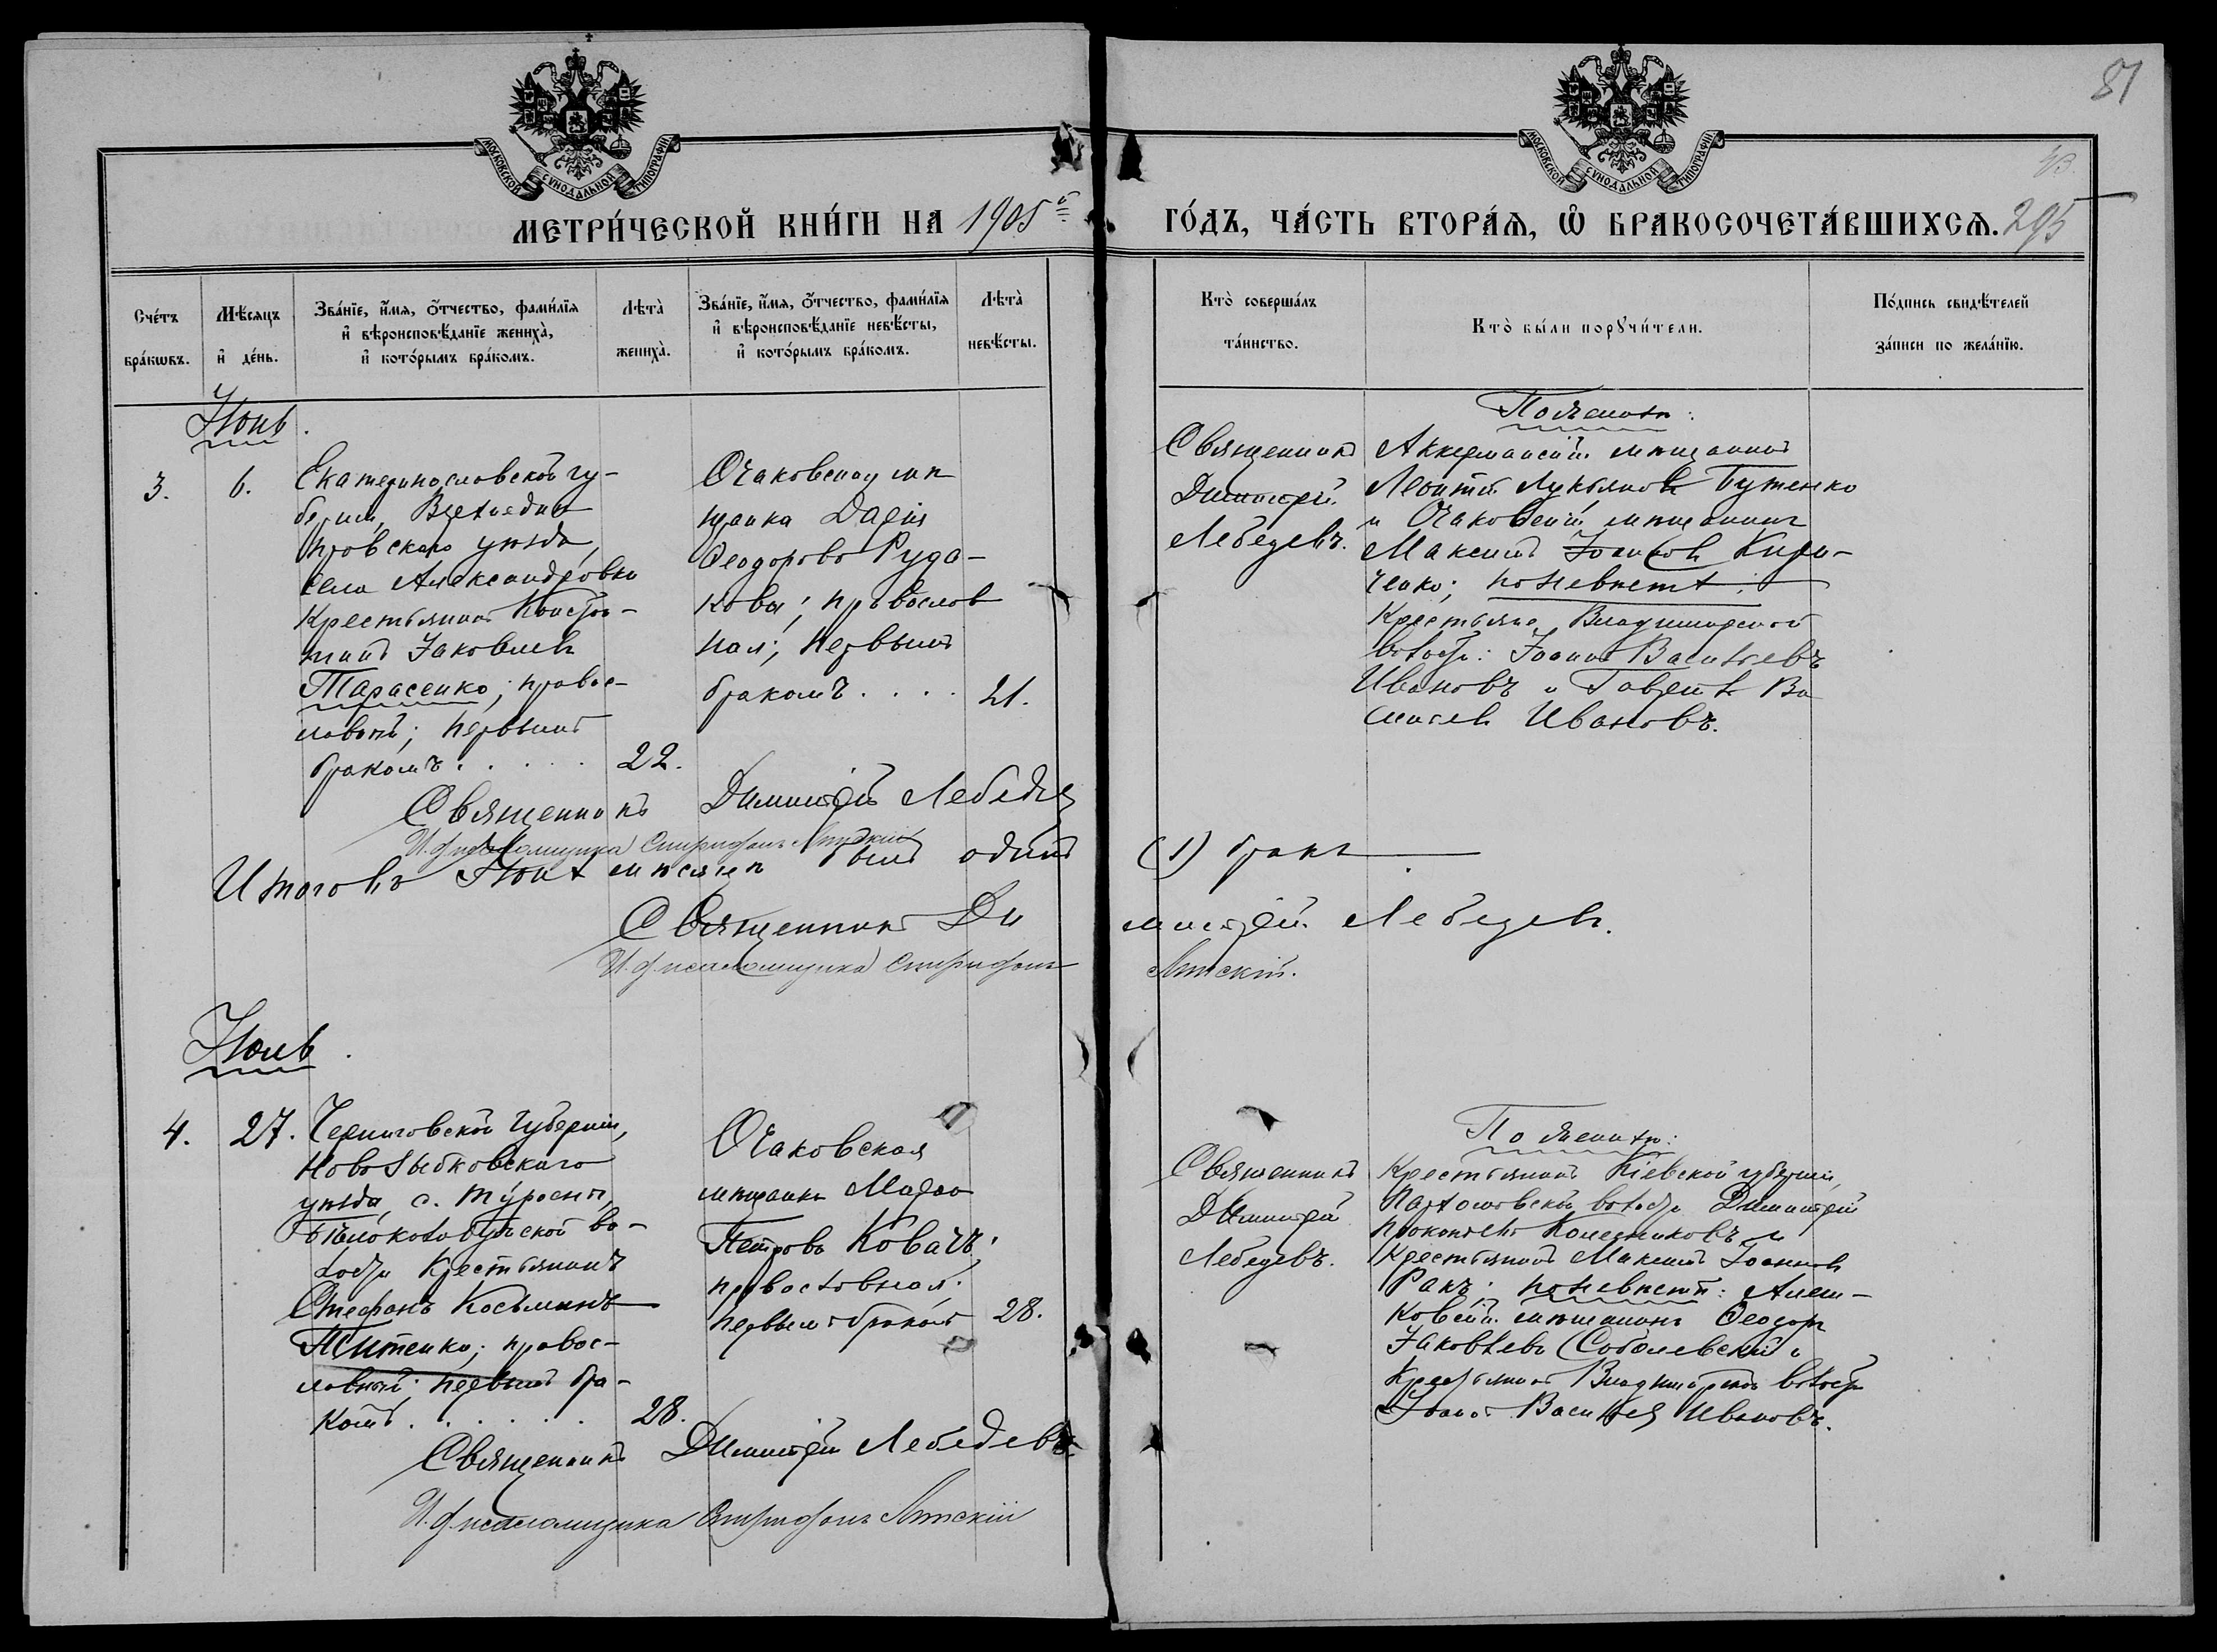 81
МОСКОВСКОЙ СѴНОДАЛЬНОЙ ТИПОГРАФІИ
МОСКОВСКОЙ СѴНОДАЛЬНОЙ ТИПОГРАФІИ
МЕТРИ́ЧЕСКОЙ КНИ́ГИ НА 1905й
ГО́ДЪ, ЧА́СТЬ ВТОРА́Ѧ, Ѽ БРАКОСОЧЕТА́ВШИХСѦ. 295
Сче́тъ бра́кѡвъ.
Мѣ́сяцъ и҆ де́нь.
Зва́нїе, и҆́мѧ, ѻ҆́тчество, фами́лїѧ и҆ вѣроисповѣ́данїе жениха̀, и҆ кото́рымъ бра́комъ.
Лѣта̀ жениха̀.
Зва́нїе, и҆́мѧ, ѻ҆́тчество, фами́лїѧ и҆ вѣроисповѣ́данїе невѣ́сты, и҆ кото́рымъ бра́комъ.
Лѣта̀ невѣ́сты.
Кто̀ соверша́лъ та́инство.
Кто̀ бы́ли порꙋчи́тели.
По́дпись свидѣ́телей за́писи по жела́нїю.
Іюнь.
3.
6.
Екатеринославской гу-
берніи, Верхнедне
провскаго уѣзда,
села Александровки
Крестьянинъ Констан-
тинъ Іаковлевъ
Тарасенко; правос-
лавный; первымъ
бракомъ . . . . .
22.
Очаковская мѣ
щанка Дарія
Ѳеодорова Руда-
кова; православ
ная; первымъ
бракомъ . . . .
21.
Священникъ
Димитрій
Лебедевъ.
По женихѣ:
Аккерманскій мѣщанинъ
Леонтій Лукьяновъ Бутенко
и Очаковскій мѣщанинъ
Максимъ Іоанновъ Кири-
ченко; по невѣстѣ:
Крестьяне Владимірской
волости: Іоаннъ Васильевъ
Ивановъ и Гавріилъ Ва
сильевъ Ивановъ.
Священникъ Димитрій Лебедев
И. д. псаломщика Спиридонъ Лятскій
Итого въ Іюнѣ мѣсяцѣ былъ одинъ (1) бракъ
Священникъ Димитрій Лебедевъ.
И. д. псаломщика Спиридонъ Лятскій.
Іюль.
4.
27.
Черниговской губерніи,
Новозыбковскаго
уѣзда, с. Туросны,
Бѣлоколодезской во-
лости Крестьянинъ
Стефанъ Косьминъ
православный; первымъ бра-
комъ . . . . . .
28.
Очаковская
мѣщанка
Петрова Ковачъ;
православная;
первымъ бракомъ
28.
Священникъ
Димитрій
Лебедевъ.
По женихѣ:
Крестьянинъ Кіевской губерніи,
волости Димитрій
Прокопіевъ Колесниковъ и
Крестьянинъ Максимъ Іоанновъ
Ракъ; по невѣстѣ: Алеш-
ковскій мѣщанинъ Ѳеодоръ
Іаковлевъ Соболевскій и
Крестьянинъ Владимірской волости
Іоаннъ Васильев Ивановъ.
Священникъ Димитрій Лебедевъ
И. д. псаломщика Спиридонъ Лятскій